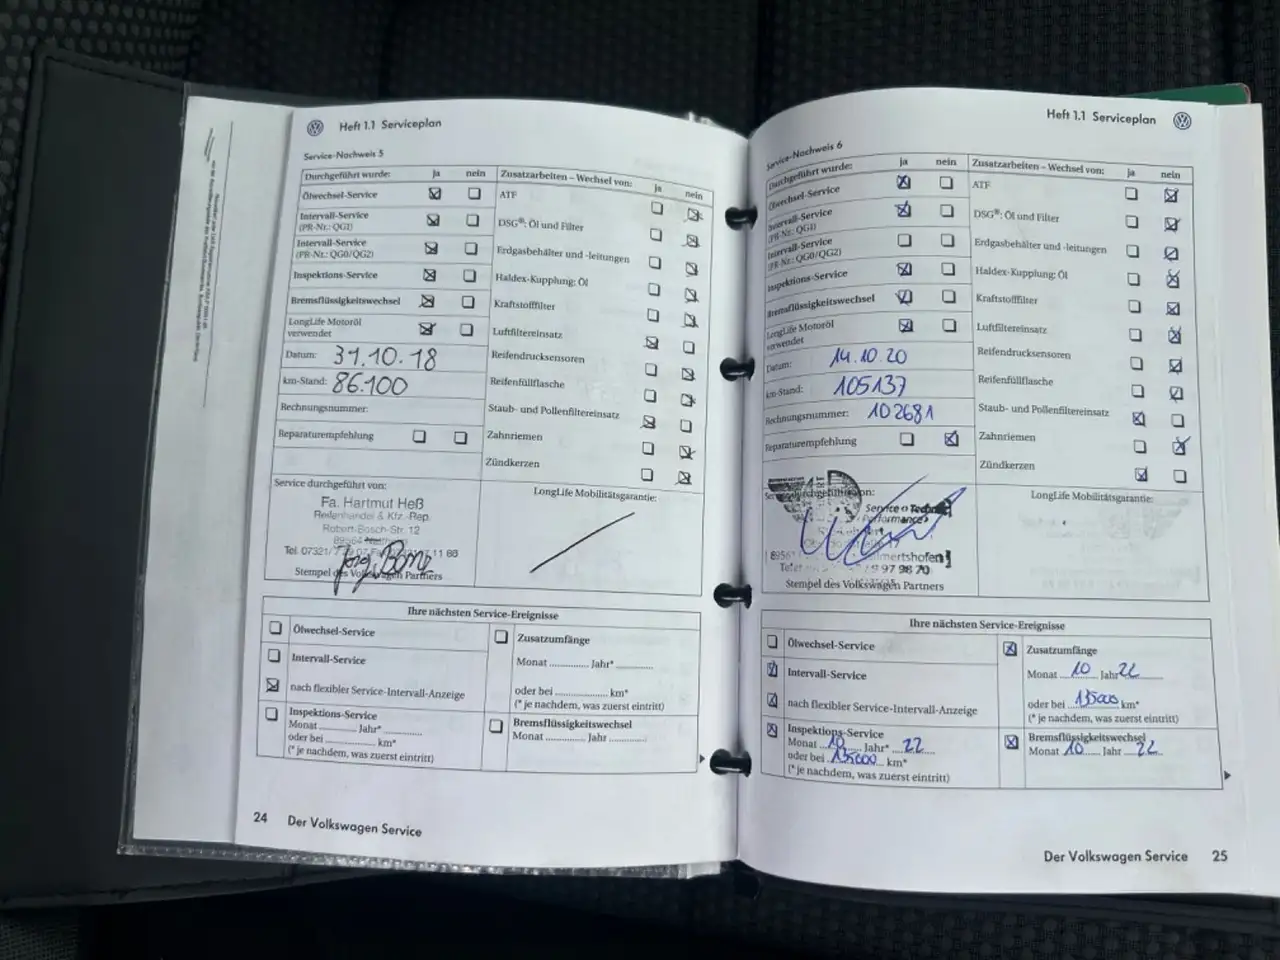 Heft 1.1 Serviceplan
Service-Nachweis 5
Durchgeführt wurde: ja nein
Ölwechsel-Service
Intervall-Service
(PR-Nr.: QG1)
Intervall-Service
(PR-Nr.: QG0/QG2)
Inspektions-Service
Bremsflüssigkeitswechsel
LongLife Motoröl
verwendet
Datum: 31.10.18
km-Stand: 86.100
Rechnungsnummer:
Reparaturempfehlung
Zusatzarbeiten – Wechsel von: ja nein
ATF
DSG®: Öl und Filter
Erdgasbehälter und -leitungen
Haldex-Kupplung: Öl
Kraftstofffilter
Luftfiltereinsatz
Reifendrucksensoren
Reifenfüllflasche
Staub- und Pollenfiltereinsatz
Zahnriemen
Zündkerzen
Service durchgeführt von:
Fa. Hartmut Heß
Reifenhandel & Kfz.-Rep.
Robert-Bosch-Str. 12
89564
Tel. 07321/
Stempel des Volkswagen Partners
LongLife Mobilitätsgarantie:
Ihre nächsten Service-Ereignisse
Ölwechsel-Service
Intervall-Service
nach flexibler Service-Intervall-Anzeige
Inspektions-Service
Monat Jahr*
oder bei km*
(* je nachdem, was zuerst eintritt)
Zusatzumfänge
Monat Jahr*
oder bei km*
(* je nachdem, was zuerst eintritt)
Bremsflüssigkeitswechsel
Monat Jahr
24 Der Volkswagen Service
Heft 1.1 Serviceplan
Service-Nachweis 6
Durchgeführt wurde: ja nein
Ölwechsel-Service
Intervall-Service
(PR-Nr.: QG1)
Intervall-Service
(PR-Nr.: QG0/QG2)
Inspektions-Service
Bremsflüssigkeitswechsel
LongLife Motoröl
verwendet
Datum: 14.10.20
km-Stand: 105137
Rechnungsnummer: 102681
Reparaturempfehlung
Zusatzarbeiten – Wechsel von: ja nein
ATF
DSG®: Öl und Filter
Erdgasbehälter und -leitungen
Haldex-Kupplung: Öl
Kraftstofffilter
Luftfiltereinsatz
Reifendrucksensoren
Reifenfüllflasche
Staub- und Pollenfiltereinsatz
Zahnriemen
Zündkerzen
Service
Performance
Stempel des Volkswagen Partners
LongLife Mobilitätsgarantie:
Ihre nächsten Service-Ereignisse
Ölwechsel-Service
Intervall-Service
nach flexibler Service-Intervall-Anzeige
Inspektions-Service
Monat 10 Jahr* 22
oder bei 135000 km*
(* je nachdem, was zuerst eintritt)
Zusatzumfänge
Monat 10 Jahr 22
oder bei 135000 km*
(* je nachdem, was zuerst eintritt)
Bremsflüssigkeitswechsel
Monat 10 Jahr 22
Der Volkswagen Service 25